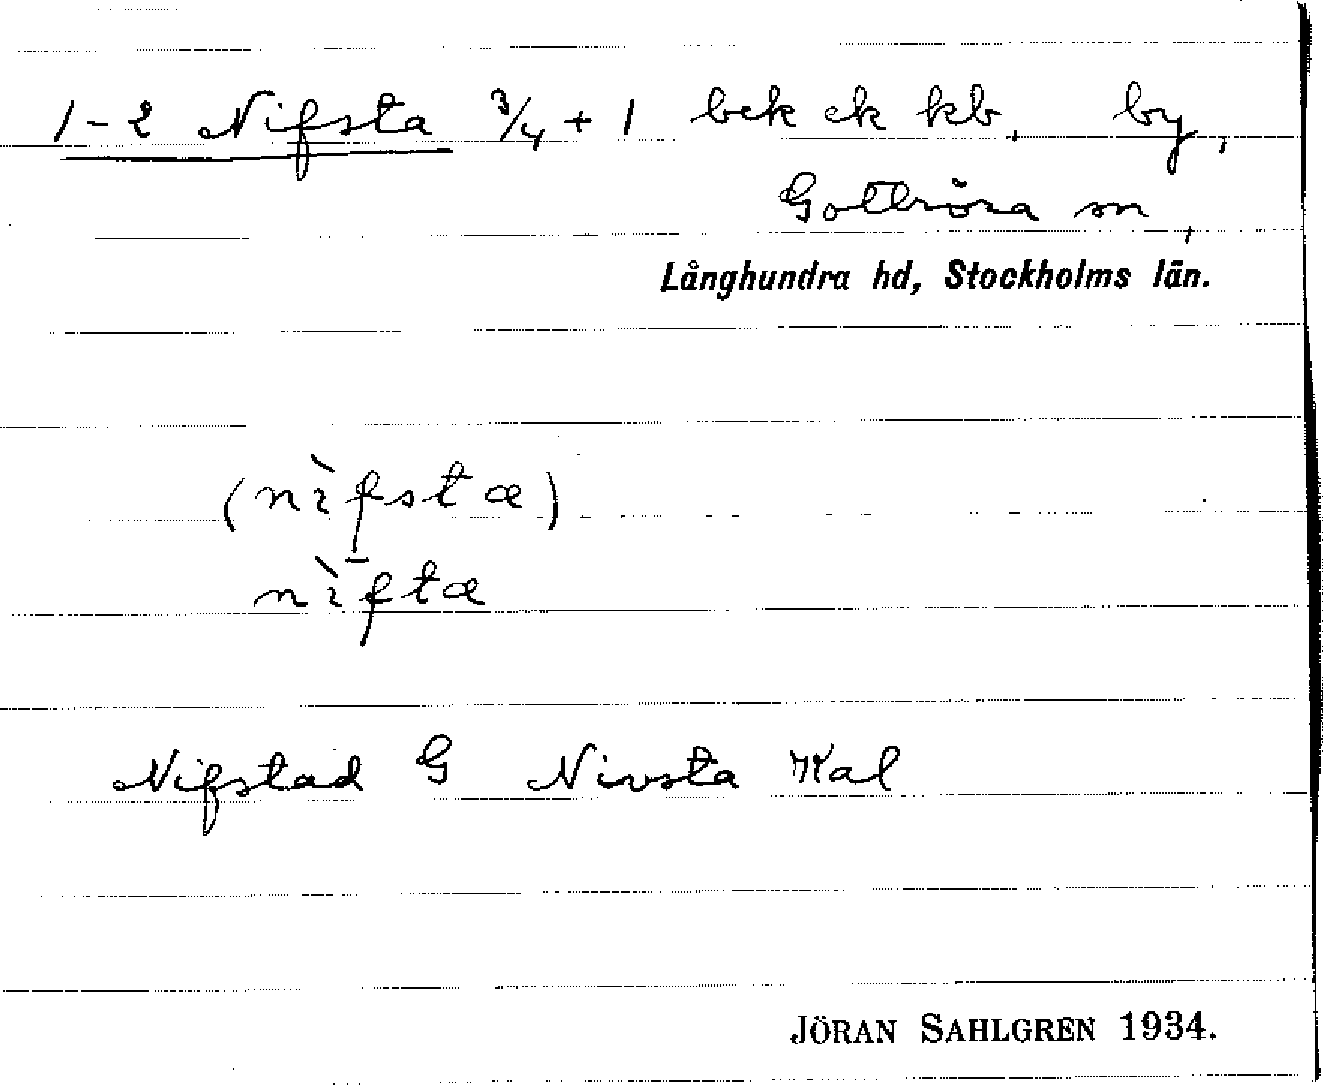 1-2 Nifsta 3/4 + 1 bek ek kb, by,
Gottröra sn,
Långhundra hd, Stockholms län.
(nìfsta)
nìfta
Nifstad G Nivsta Kal
JÖRAN SAHLGREN 1934.